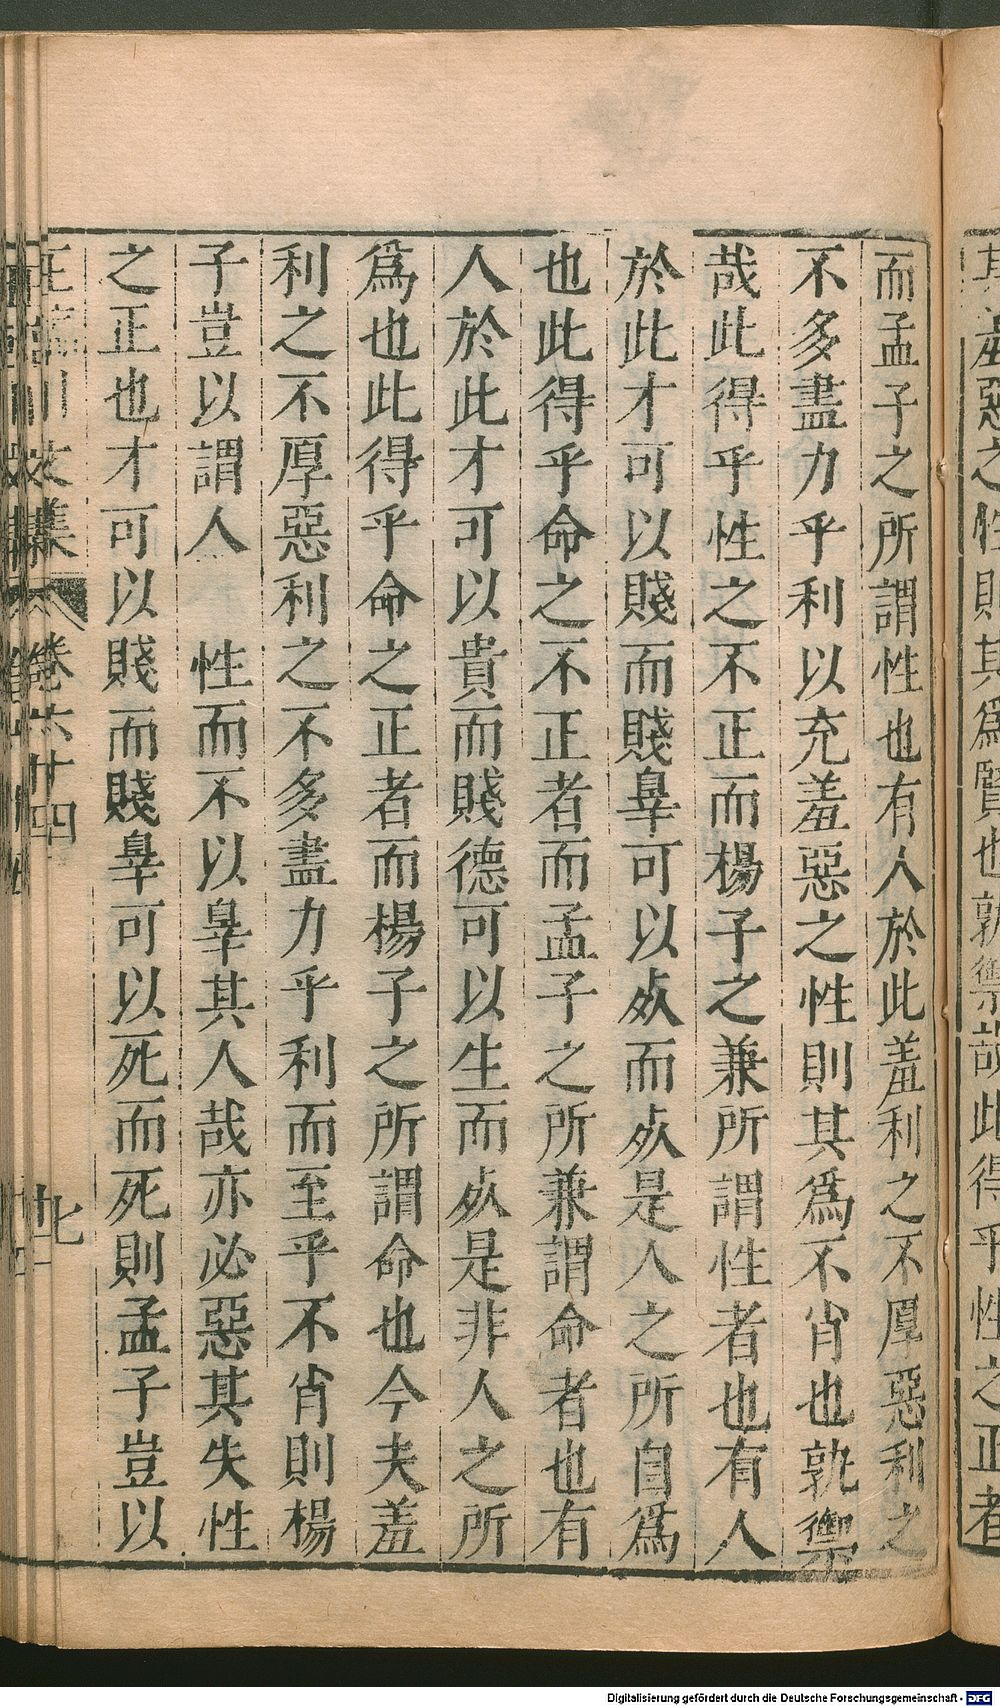 其羞惡之性則其爲賢也孰禦哉此得乎性之正者
而孟子之所謂性也有人於此羞利之不厚惡利之
不多盡力乎利以充羞惡之性則其爲不肖也孰禦
哉此得乎性之不正而楊子之兼所謂性者也有人
於此才可以賤而賤辠可以死而死是人之所自爲
也此得乎命之不正者而孟子之所兼謂命者也有
人於此才可以貴而賤德可以生而死是非人之所
爲也此得乎命之正者而楊子之所謂命也今夫羞
利之不厚惡利之不多盡力乎利而至乎不肖則楊
子豈以謂人 性而不以辠其人哉亦必惡其失性
之正也才可以賤而賤辠可以死而死則孟子豈以
王臨川文集 卷六十四
Digitalisierung gefördert durch die Deutsche Forschungsgemeinschaft - DFG